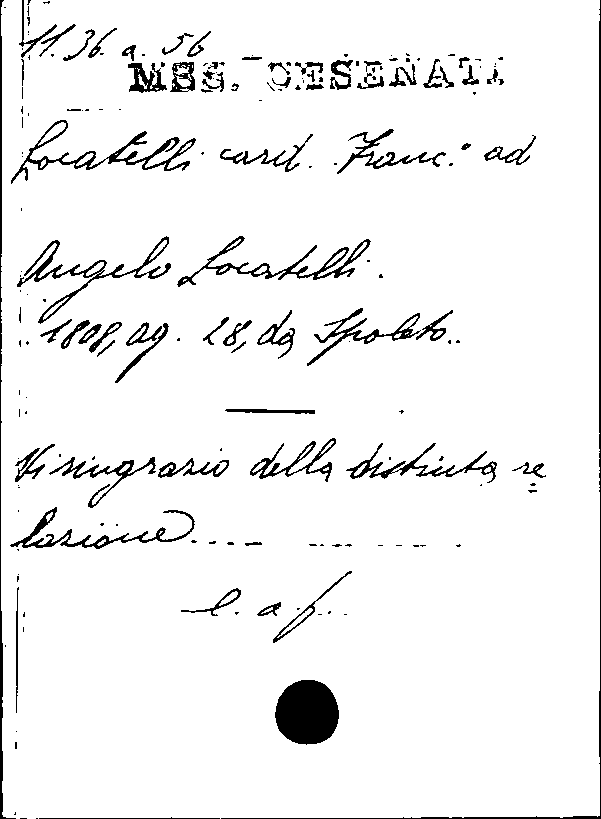 11. 36. a. 56
MSS. CESENATI
Locatelli card. Franc.° ad
Angelo Locatelli.
1808, ag. 28, da Spoleto.
Vi ringrazio della distinta re=
lazione....
l. a f.